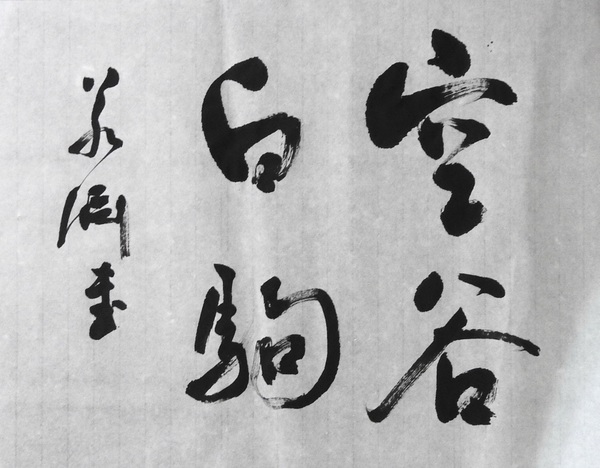 空谷
白駒
書